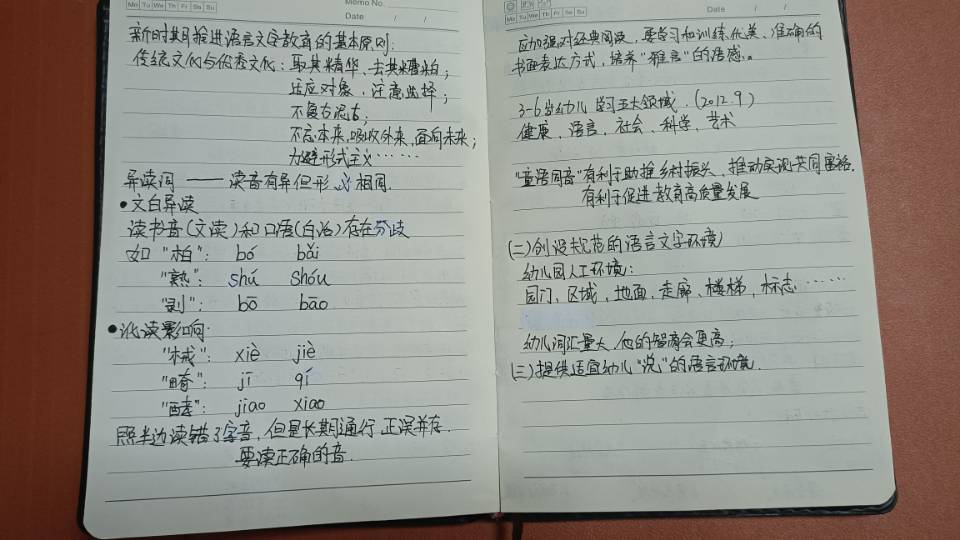 Memo No.
Mo Tu We Th Fr Sa Su
Date / /
新时期推进语言文字教育的基本原则:
传统文化与优秀文化: 取其精华、去其糟粕;
适应对象,注意选择;
不复古泥古;
不忘本来,吸收外来,面向未来;
力避形式主义……
异读词——读音有异但形、义相同.
●文白异读
读书音(文读)和口语(白话)存在分歧
如“柏”: bó bǎi
“熟”: shú shóu
“剥”: bō bāo
●讹读影响·
“械”: xiè jiè
“畸”: jī qí
“酵”: jiao xiao
照半边读错了字音,但是长期通行,正误并存.
要读正确的音.
Mo Tu We Th Fr Sa Su
Date / /
应加强对经典阅读,要学习和训练优美、准确的
书面表达方式,培养“雅言”的语感。
3-6岁幼儿学习五大领域.(2012.9)
健康、语言、社会、科学、艺术
“童语同音”有利于助推乡村振兴,推动实现共同富裕.
有利于促进教育高质量发展
(二)创设规范的语言文字环境
幼儿园人工环境:
园门、区域、地面、走廊、楼梯、标志……
幼儿词汇量大,他的智商会更高;
(三)提供适宜幼儿“说”的语言环境.